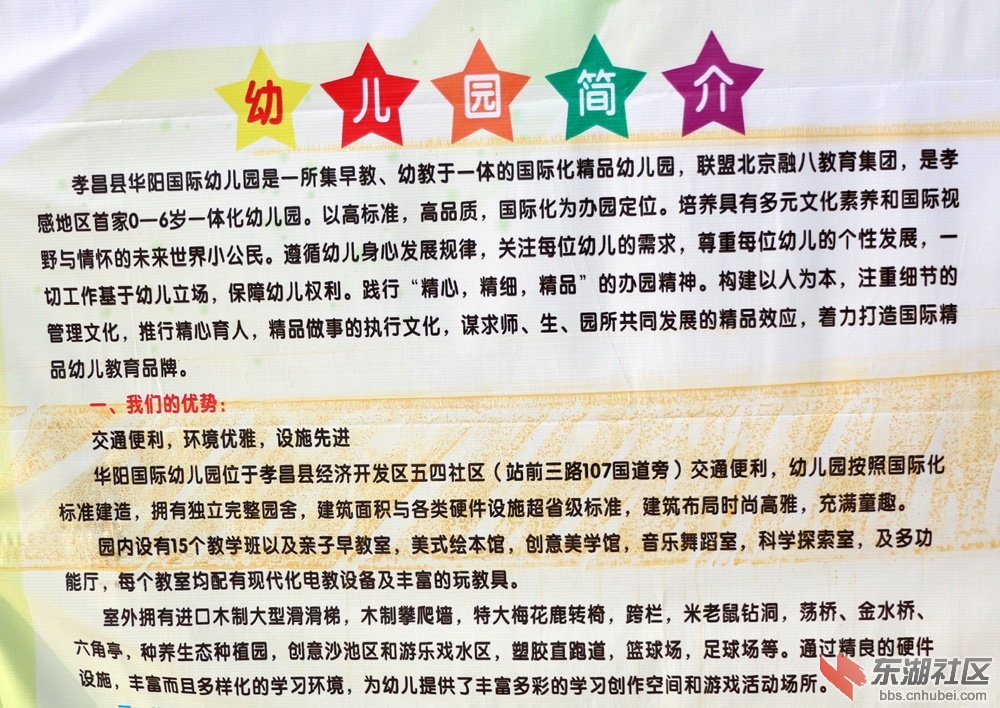 幼儿园简介
孝昌县华阳国际幼儿园是一所集早教、幼教于一体的国际化精品幼儿园，联盟北京融八教育集团，是孝
感地区首家0—6岁一体化幼儿园。以高标准，高品质，国际化为办园定位。培养具有多元文化素养和国际视
野与情怀的未来世界小公民。遵循幼儿身心发展规律，关注每位幼儿的需求，尊重每位幼儿的个性发展，一
切工作基于幼儿立场，保障幼儿权利。践行“精心，精细，精品”的办园精神。构建以人为本，注重细节的
管理文化，推行精心育人，精品做事的执行文化，谋求师、生、园所共同发展的精品效应，着力打造国际精
品幼儿教育品牌。
一、我们的优势：
交通便利，环境优雅，设施先进
华阳国际幼儿园位于孝昌县经济开发区五四社区（站前三路107国道旁）交通便利，幼儿园按照国际化
标准建造，拥有独立完整园舍，建筑面积与各类硬件设施超省级标准，建筑布局时尚高雅，充满童趣。
园内设有15个教学班以及亲子早教室，美式绘本馆，创意美学馆，音乐舞蹈室，科学探索室，及多功
能厅，每个教室均配有现代化电教设备及丰富的玩教具。
室外拥有进口木制大型滑滑梯，木制攀爬墙，特大梅花鹿转椅，跨栏，米老鼠钻洞，荡桥、金水桥、
六角亭，种养生态种植园，创意沙池区和游乐戏水区，塑胶直跑道，篮球场，足球场等。通过精良的硬件
设施，丰富而且多样化的学习环境，为幼儿提供了丰富多彩的学习创作空间和游戏活动场所。
东湖社区
bbs.cnhubei.com